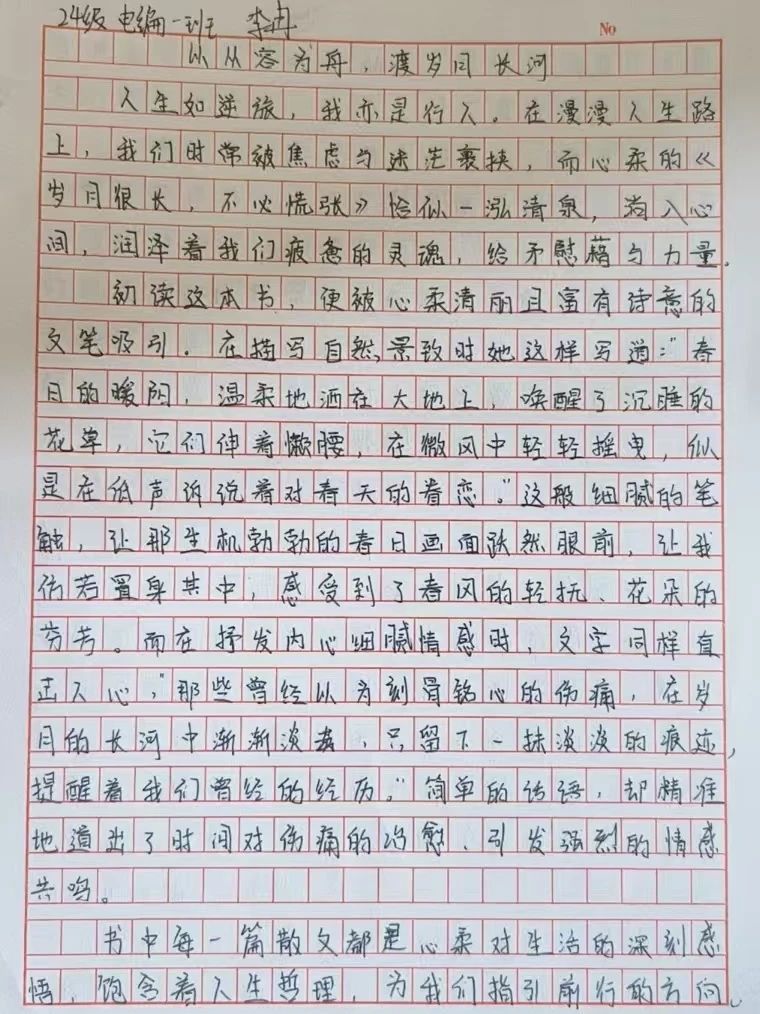 24级电编一班 李冉
No
以从容为舟，渡岁月长河
人生如逆旅，我亦是行人。在漫漫人生路
上，我们时常被焦虑与迷茫裹挟，而心柔的《
岁月很长，不必慌张》恰似一泓清泉，淌入心
间，润泽着我们疲惫的灵魂，给予慰藉与力量。
初读这本书，便被心柔清丽且富有诗意的
文笔吸引。在描写自然景致时她这样写道："春
日的暖阳，温柔地洒在大地上，唤醒了沉睡的
花草，它们伸着懒腰，在微风中轻轻摇曳，似
是在低声诉说着对春天的眷恋。"这般细腻的笔
触，让那生机勃勃的春日画面跃然眼前，让我
仿若置身其中，感受到了春风的轻抚、花朵的
芬芳。而在抒发内心细腻情感时，文字同样直
击人心，"那些曾经以为刻骨铭心的伤痛，在岁
月的长河中渐渐淡去，只留下一抹淡淡的痕迹，
提醒着我们曾经的经历。"简单的话语，却精准
地道出了时间对伤痛的治愈，引发强烈的情感
共鸣。
书中每一篇散文都是心柔对生活的深刻感
悟，饱含着人生哲理，为我们指引前行的方向。